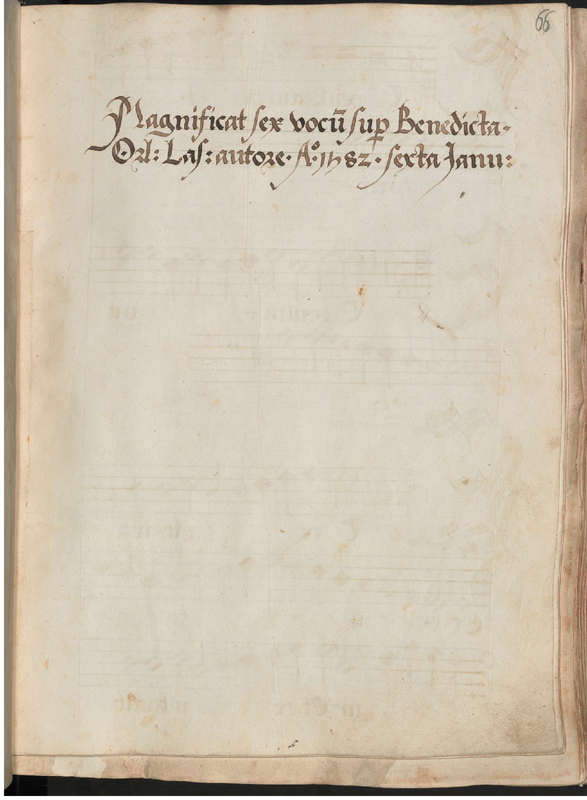 66
Magnificat sex vocū sup Benedicta.
Orl: Las: autore. A.º 1582. sexta Janu: